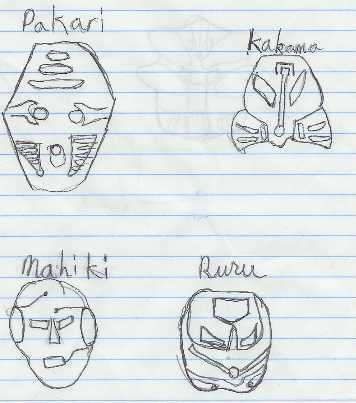 Pakari
Kakama
Mahiki
Ruru